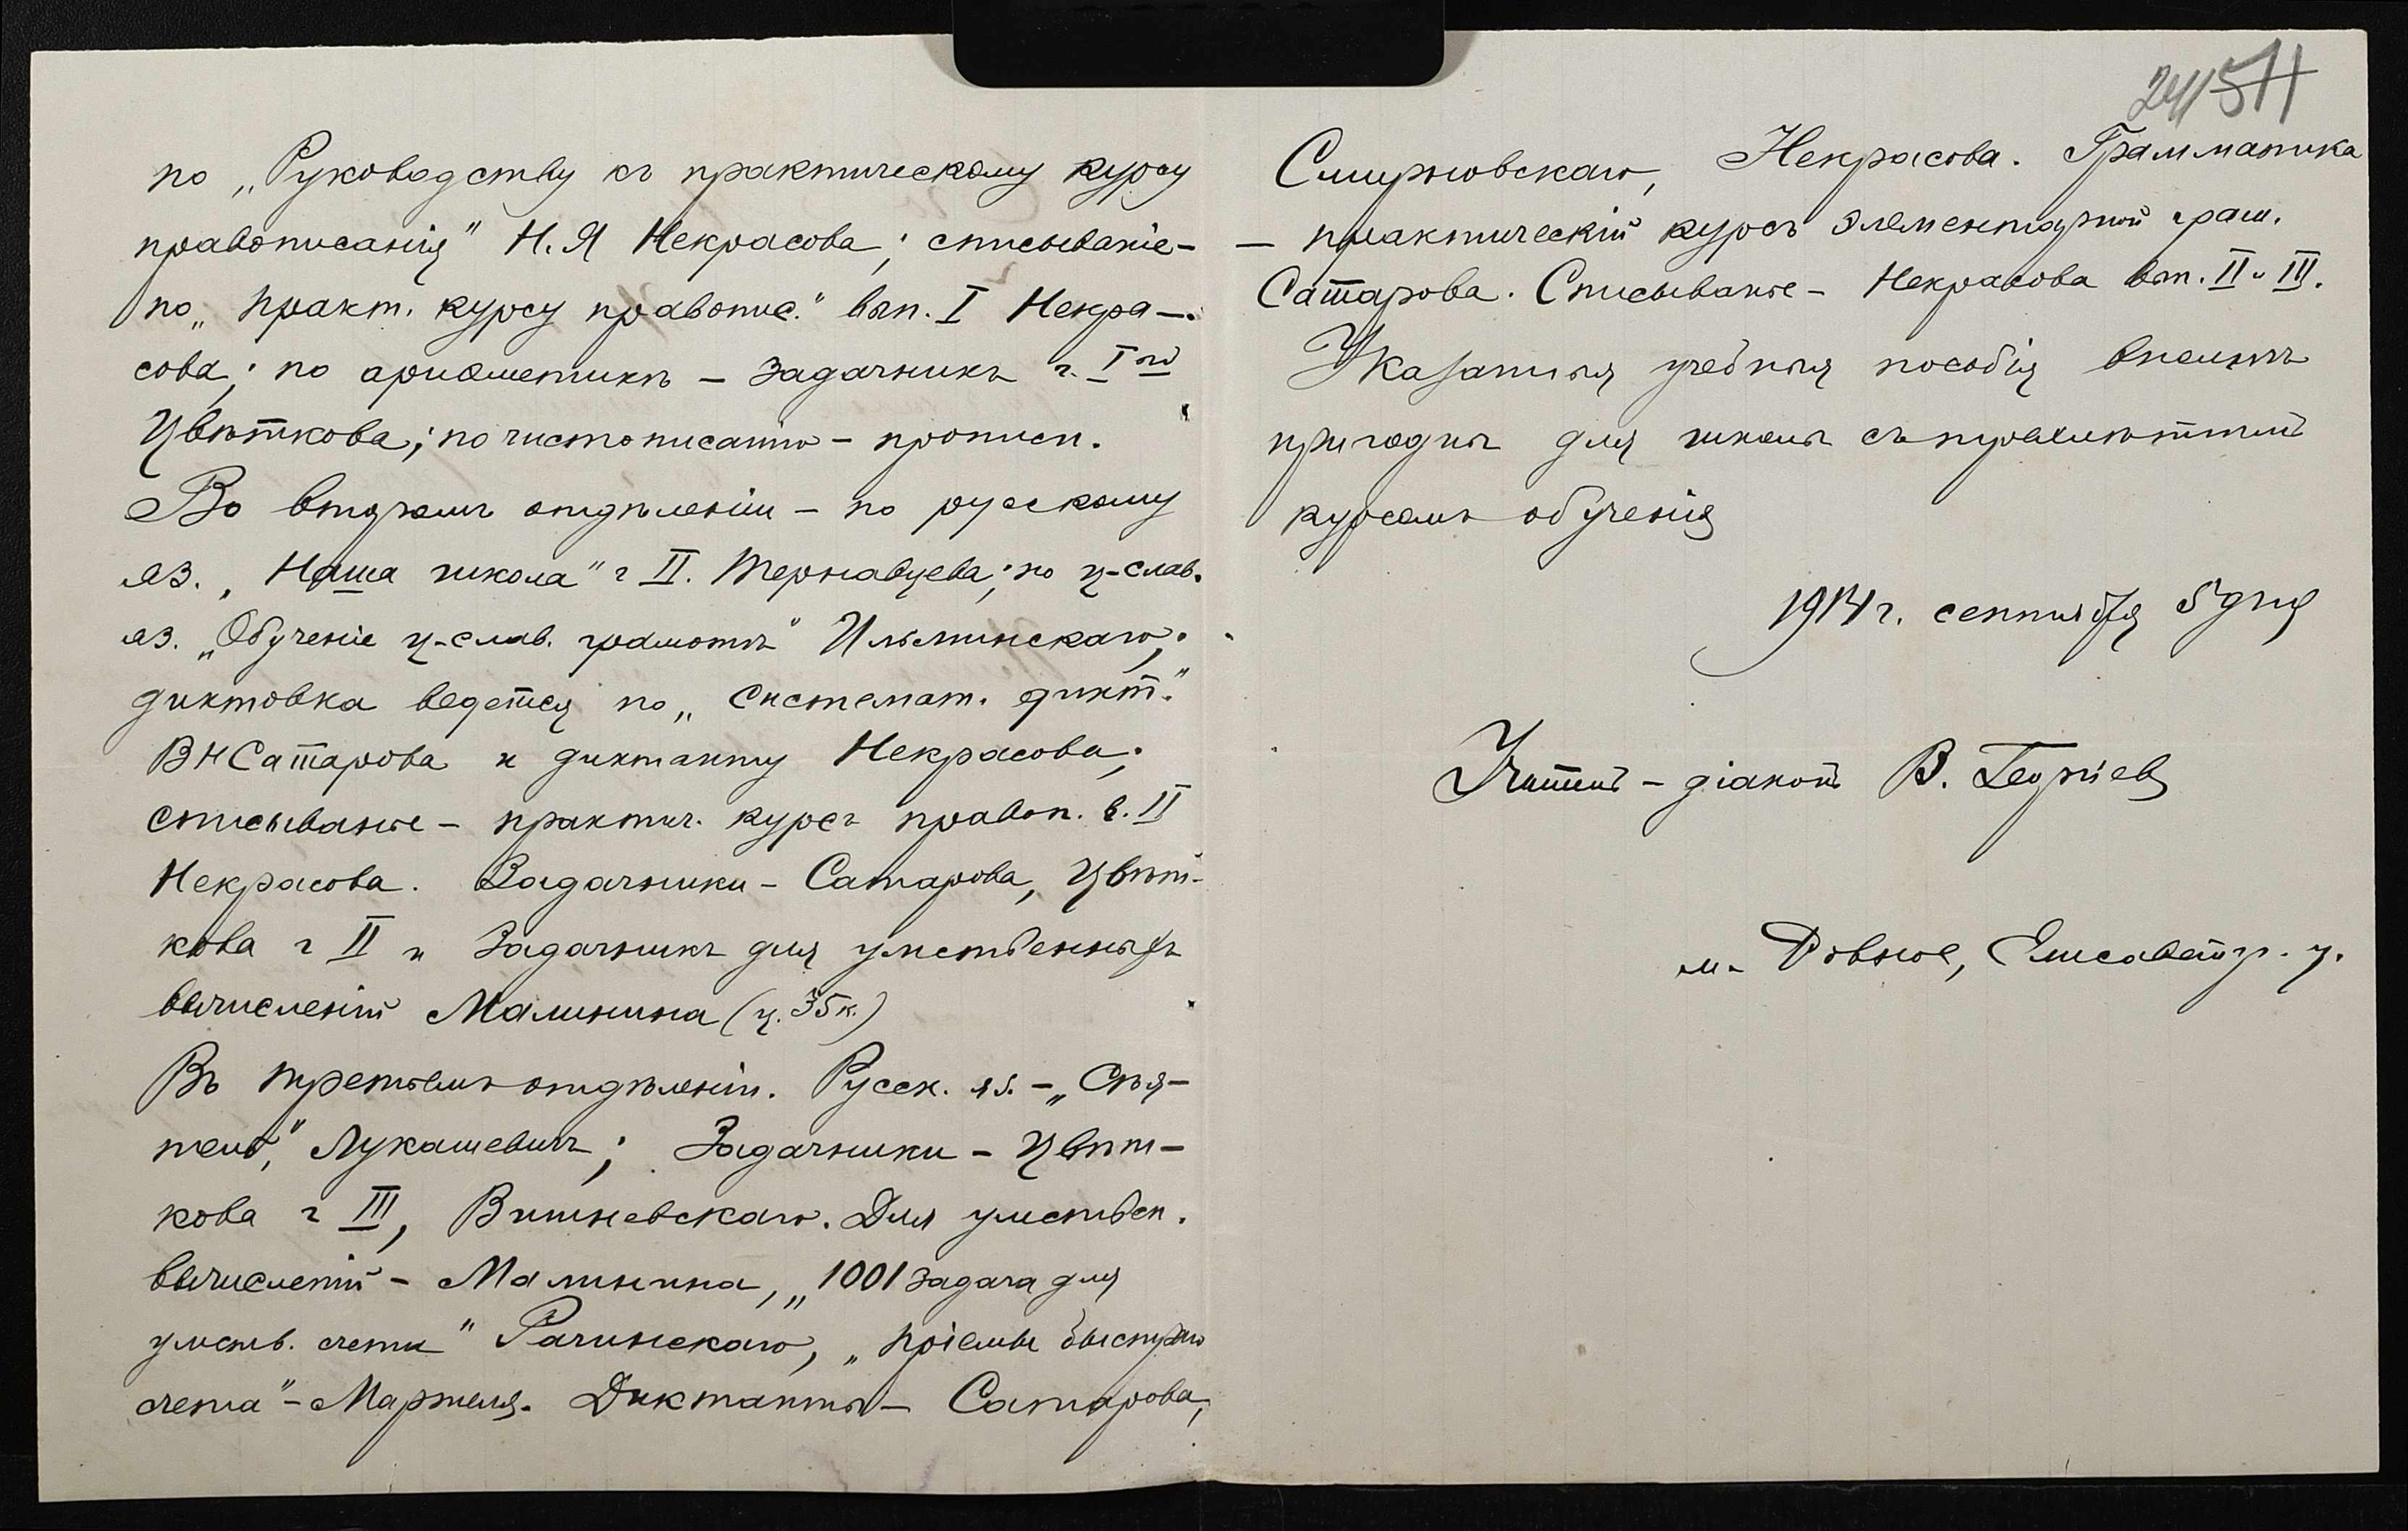 по „Руководству къ практическому курсу
правописанія" Н. Я Некрасова; списываніе-
по „практ. курсу правопис." вып. I Некра-
сова; по ариѳметикѣ - задачникъ ч. I-ой
Цвѣткова; по чистописанію - прописи.
Во второмъ отдѣленіи - по русскому
яз. „Наша школа" ч II. Тернавцева; по ц-слав.
яз. „Обученіе ц-слав. грамотѣ" Ильминскаго;
диктовка ведется по „Системат. дикт."
ВНСатарова и диктанту Некрасова;
списыванье - практич. курсъ правоп. в. II
Некрасова. Задачники - Сатарова, Цвѣт-
кова ч II и Задачникъ для умственныхъ
вычисленій Малинина (ц. 35 к.)
Въ третьемъ отдѣленіи. Русск. яз. - „Сѣя-
тель", Лукашевичъ; Задачники - Цвѣт-
кова ч III, Вишневскаго. Для умствен.
вычисленій - Малинина, „1001 задача для
умств. счета" Рачинскаго, „Пріемы быстраго
счета" - Мартеля. Диктанты - Сатарова,
24 511
Смирновскаго, Некрасова. Грамматика
- практическій курсъ элементарной грам.
Сатарова. Списыванье - Некрасова вып. II и III.
Указанныя учебныя пособія вполнѣ
пригодны для школы съ трехлѣтнимъ
курсомъ обученія
1914 г. сентября 5 дня
Учитель - діаконъ В. Георгіевъ
м. Ровное, Елисаветгр. у.